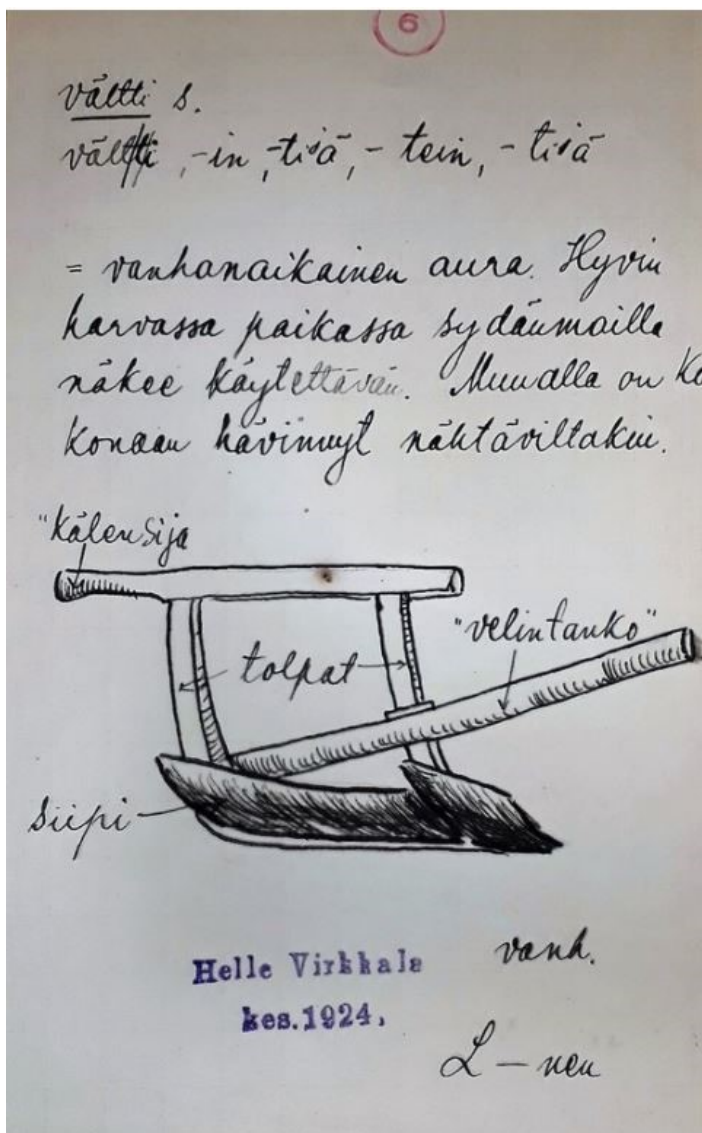 6
vältti s.
vältti, -in, -tisä, -tein, -tisä
= vanhanaikainen aura. Hyvin
harvassa paikassa sydänmailla
näkee käytettävän. Muualla on ko
konaan hävinnyt nähtäviltäkin.
"Käten sija
"velintanko"
tolpat
siipi
vanh.
Helle Virkkala
kes.1924.
L-nen